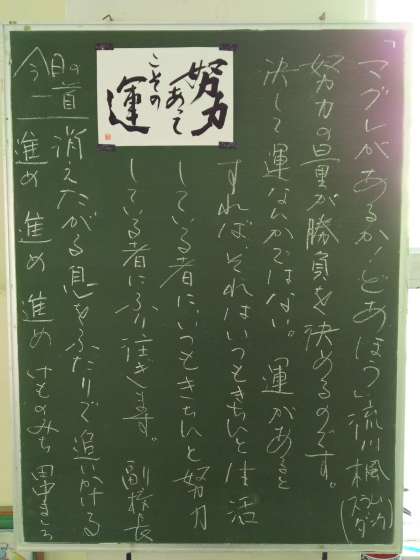 「マグレがあるか!どあほう」流川楓
努力の量が勝負を決めるのです。
決して運なんかではない。「運があると
すれば、それはいつもきちんと生活
している者に、いつもきちんと努力
している者にふり注ぎます。 副校長
努力
あって
こその
運
今日の一首
消えたがる息をふたりで追いかける
進め 進め 進め けものみち